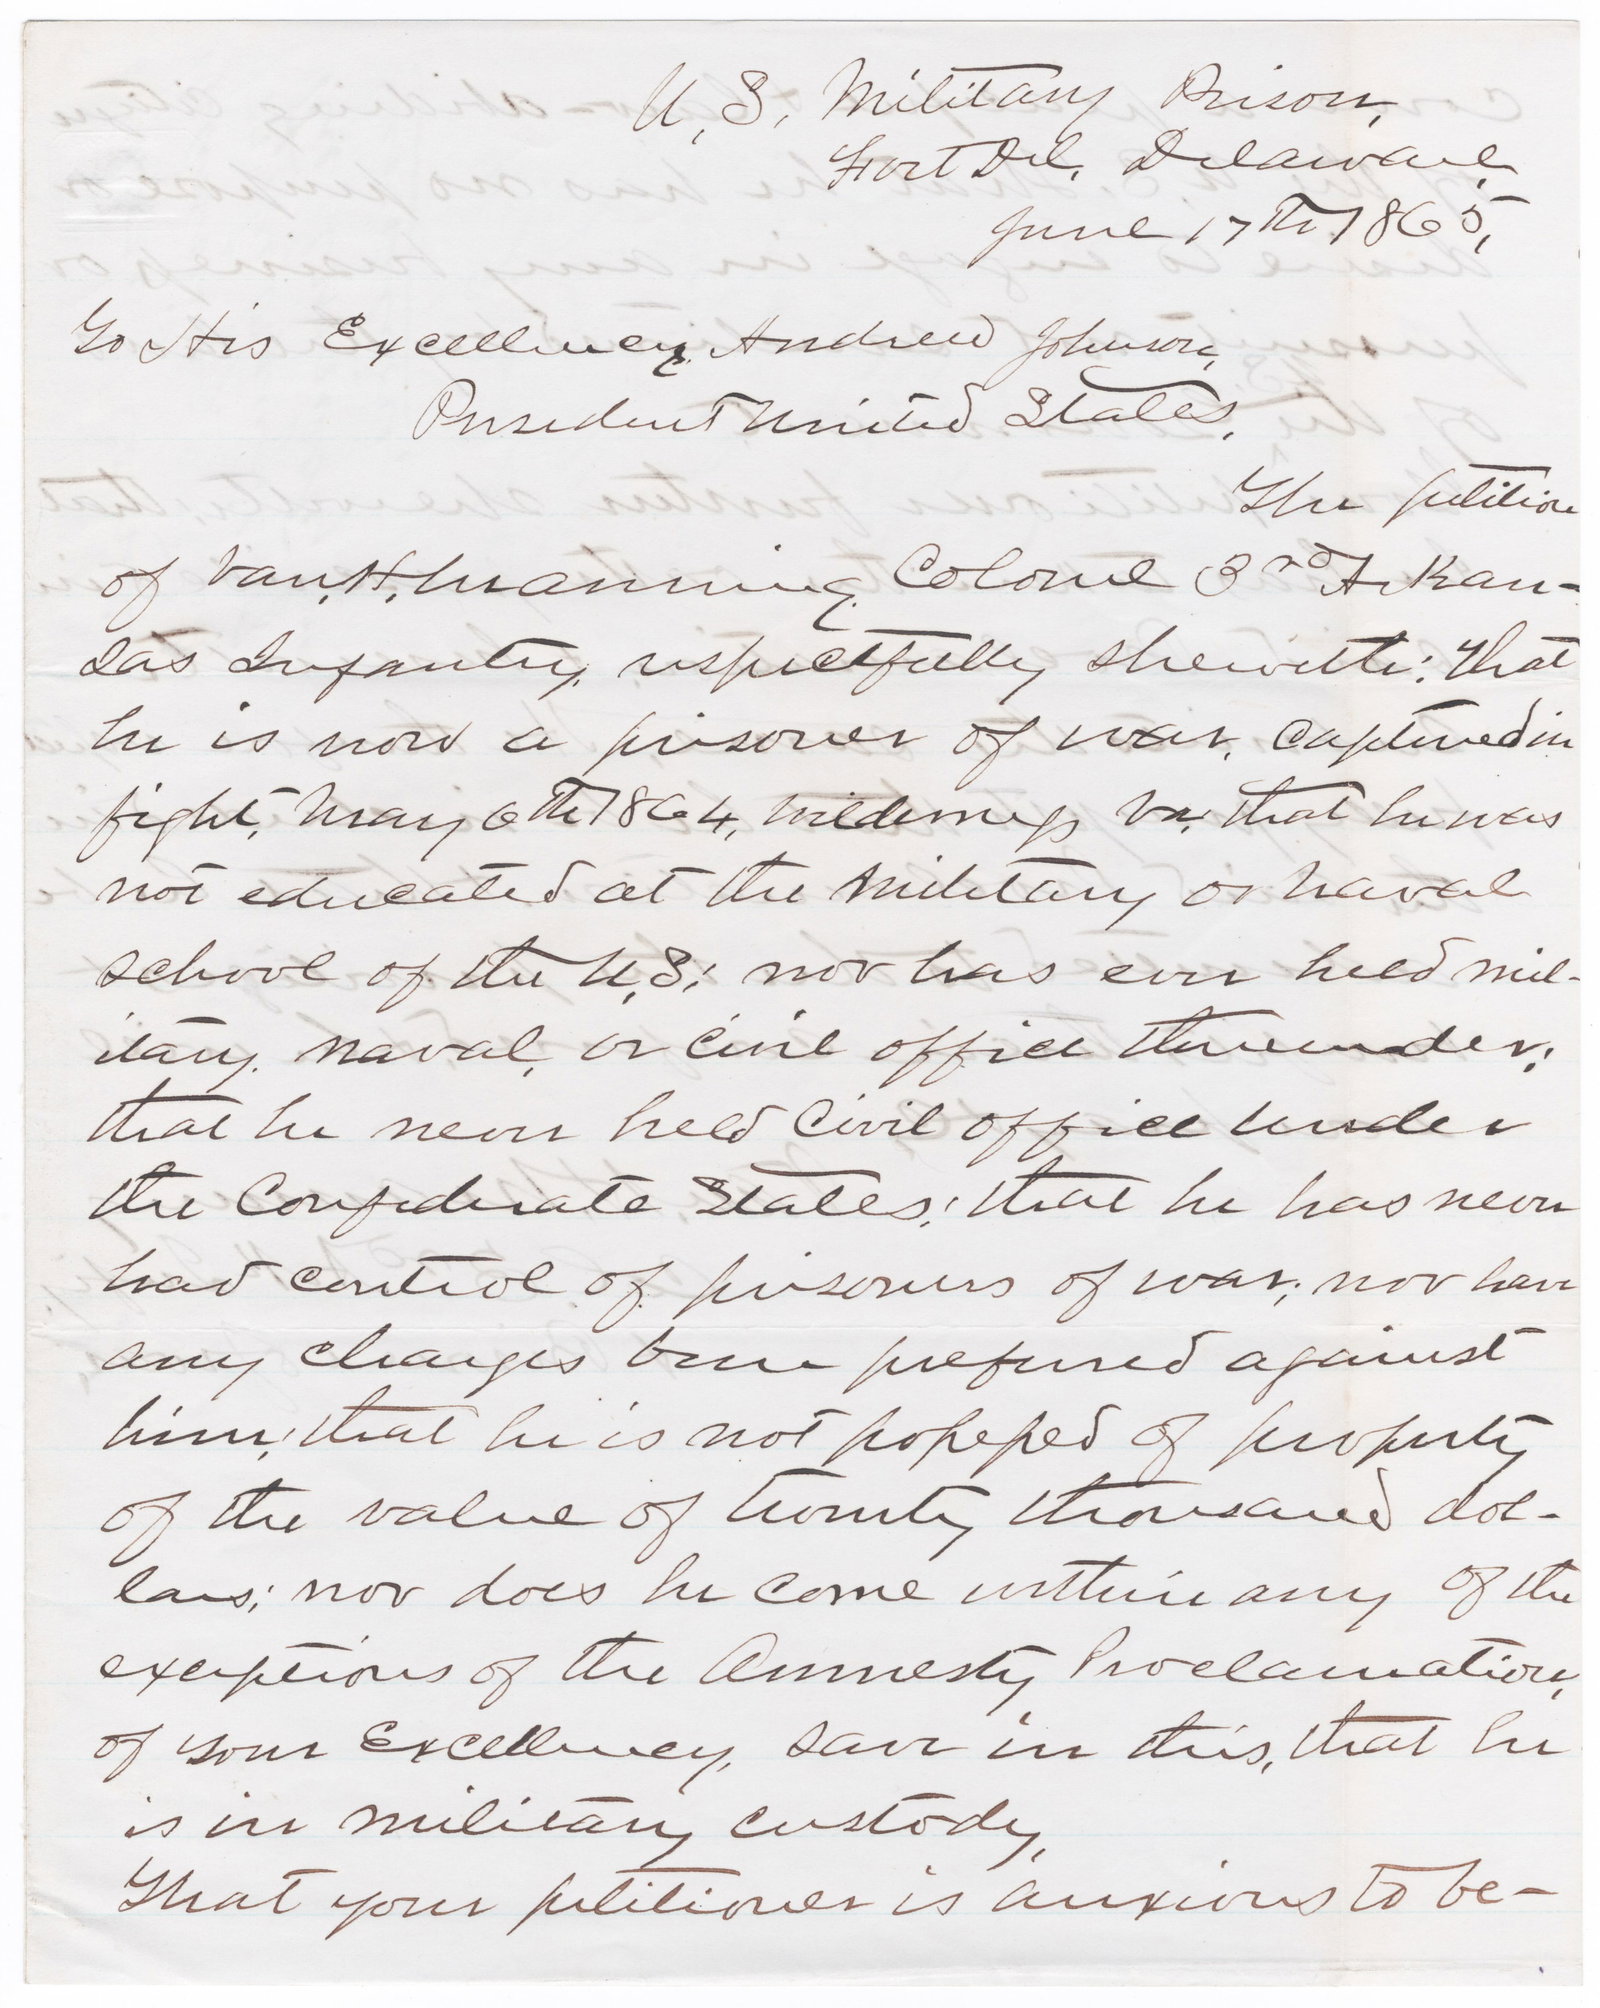 U. S. Military Prison,
Fort Del, Delaware,
June 17th 1865,
To His Excellency, Andrew Johnson,
President United States,
The petition
of Van. H. Manning, Colonel 3rd Arkan-
sas Infantry, respectfully sheweth: That
he is now a prisoner of war, captured in
fight, May 6th 1864, Wilderness Va, that he was
not educated at the Military or Naval
school of the U, S; nor has ever held mil-
itary, naval, or civil office thereunder;
that he never held civil office under
the Confederate States; that he has never
had control of prisoners of war; nor have
any charges been preferred against
him; that he is not possessed of property
of the value of twenty thousand dol-
lars; nor does he come within any of the
exceptions of the Amnesty Proclamation,
of your Excellency, save in this, that he
is in military custody,
That your petitioner is anxious to be-